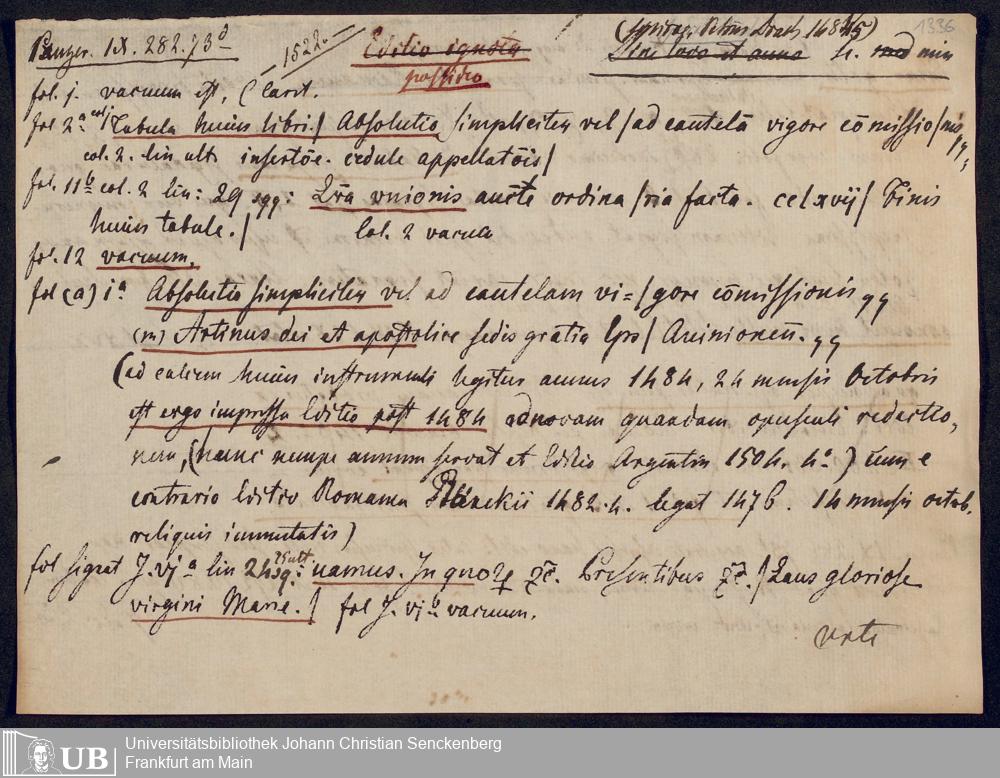 Panzer. IX. 282. 73d
1522.
Editio ignota
possideo
(Spirae, Petrus Drach 1484/5)
Sine loco et anno 4. min
1336
fol. j. vacuum est, (laut.
fol 2a col j Tabula huius libri./ Absolutio simpliciter vel/ad cautelā vigore cōmissio/nis
col. 2. lin ult. insertōe. cedule appellatōis/
fol. 11b col. 2 lin: 29 sqq: Lr̄a vnionis aucte ordina/ria facta. celxvij/ Finis
huius tabule./ Col. 2 vacua
fol. 12 vacuum.
fol (a) ia Absolutio simpliciter vel ad cautelam vi=/gore cōmissionis
(m) Artinus dei et apostolice sedis gratia Eps/ Auinioneñ.
(ad calcem huius instrumenti legitur annus 1484, 24 mensis Octobris
est ergo impressa Editio post 1484 ad novam quandam opusculi redactio,
nem, (hunc nempe annum servat et Editio Argentin 1504. 4o) cum e
contrario Editio Romana Planckii 1482. 4. legat 1476. 14 mensis octob.
reliquis immutatis)
fol signat J. vja lin 24 sq: namus. In quorꝝ ꝛc̄. Presentibus ꝛc̄./Laus gloriose
virgini Marie./ fol J. vjb vacuum.
verte
UB
Universitätsbibliothek Johann Christian Senckenberg
Frankfurt am Main